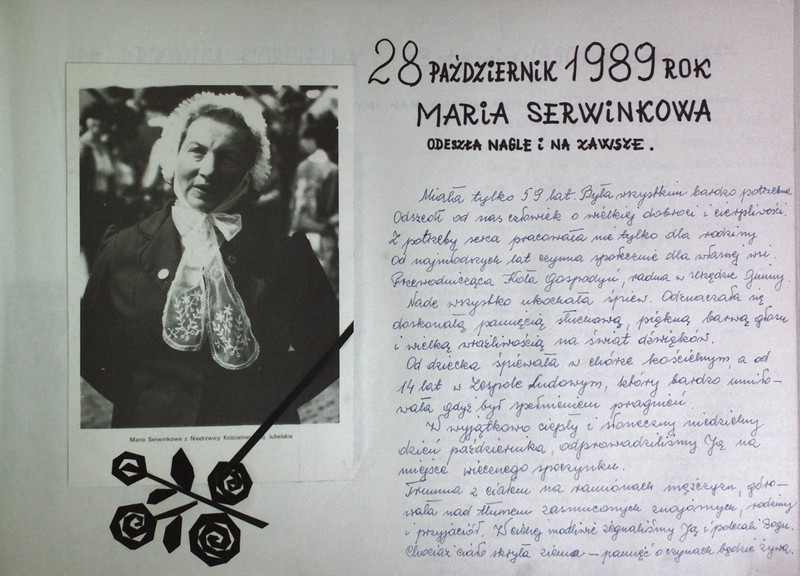 28 PAŹDZIERNIK 1989 ROK
MARIA SERWINKOWA
ODESZŁA NAGLE i NA ZAWSZE.
Miała tylko 59 lat. Była wszystkim bardzo potrzebna
Odszedł od nas człowiek o wielkiej dobroci i cierpliwości.
Z potrzeby serca pracowała nie tylko dla rodziny
Od najmłodszych lat czynna społecznie dla własnej wsi
Przewodnicząca Koła Gospodyń, radna w Urzędzie Gminy.
Nade wszystko ukochała śpiew. Odznaczała się
doskonałą pamięcią słuchową, piękną barwą głosu
i wielką wrażliwością na świat dźwięków.
Od dziecka śpiewała w chórze kościelnym, a od
14 lat w Zespole Ludowym, który bardzo umiło-
wała gdyż był spełnieniem pragnień
W wyjątkowo ciepły i słoneczny niedzielny
dzień października, odprowadziliśmy Ją na
miejsce wiecznego spoczynku.
Trumna z ciałem na ramionach mężczyzn, góro-
wała nad tłumem zasmuconych znajomych, rodziny
i przyjaciół. W cichej modlitwie żegnaliśmy Ją i polecali Bogu.
Chociaż ciało skryła ziemia – pamięć o czynach będzie żywa.
Maria Serwinkowa z Niedrzwicy Kościelnej lubelskie